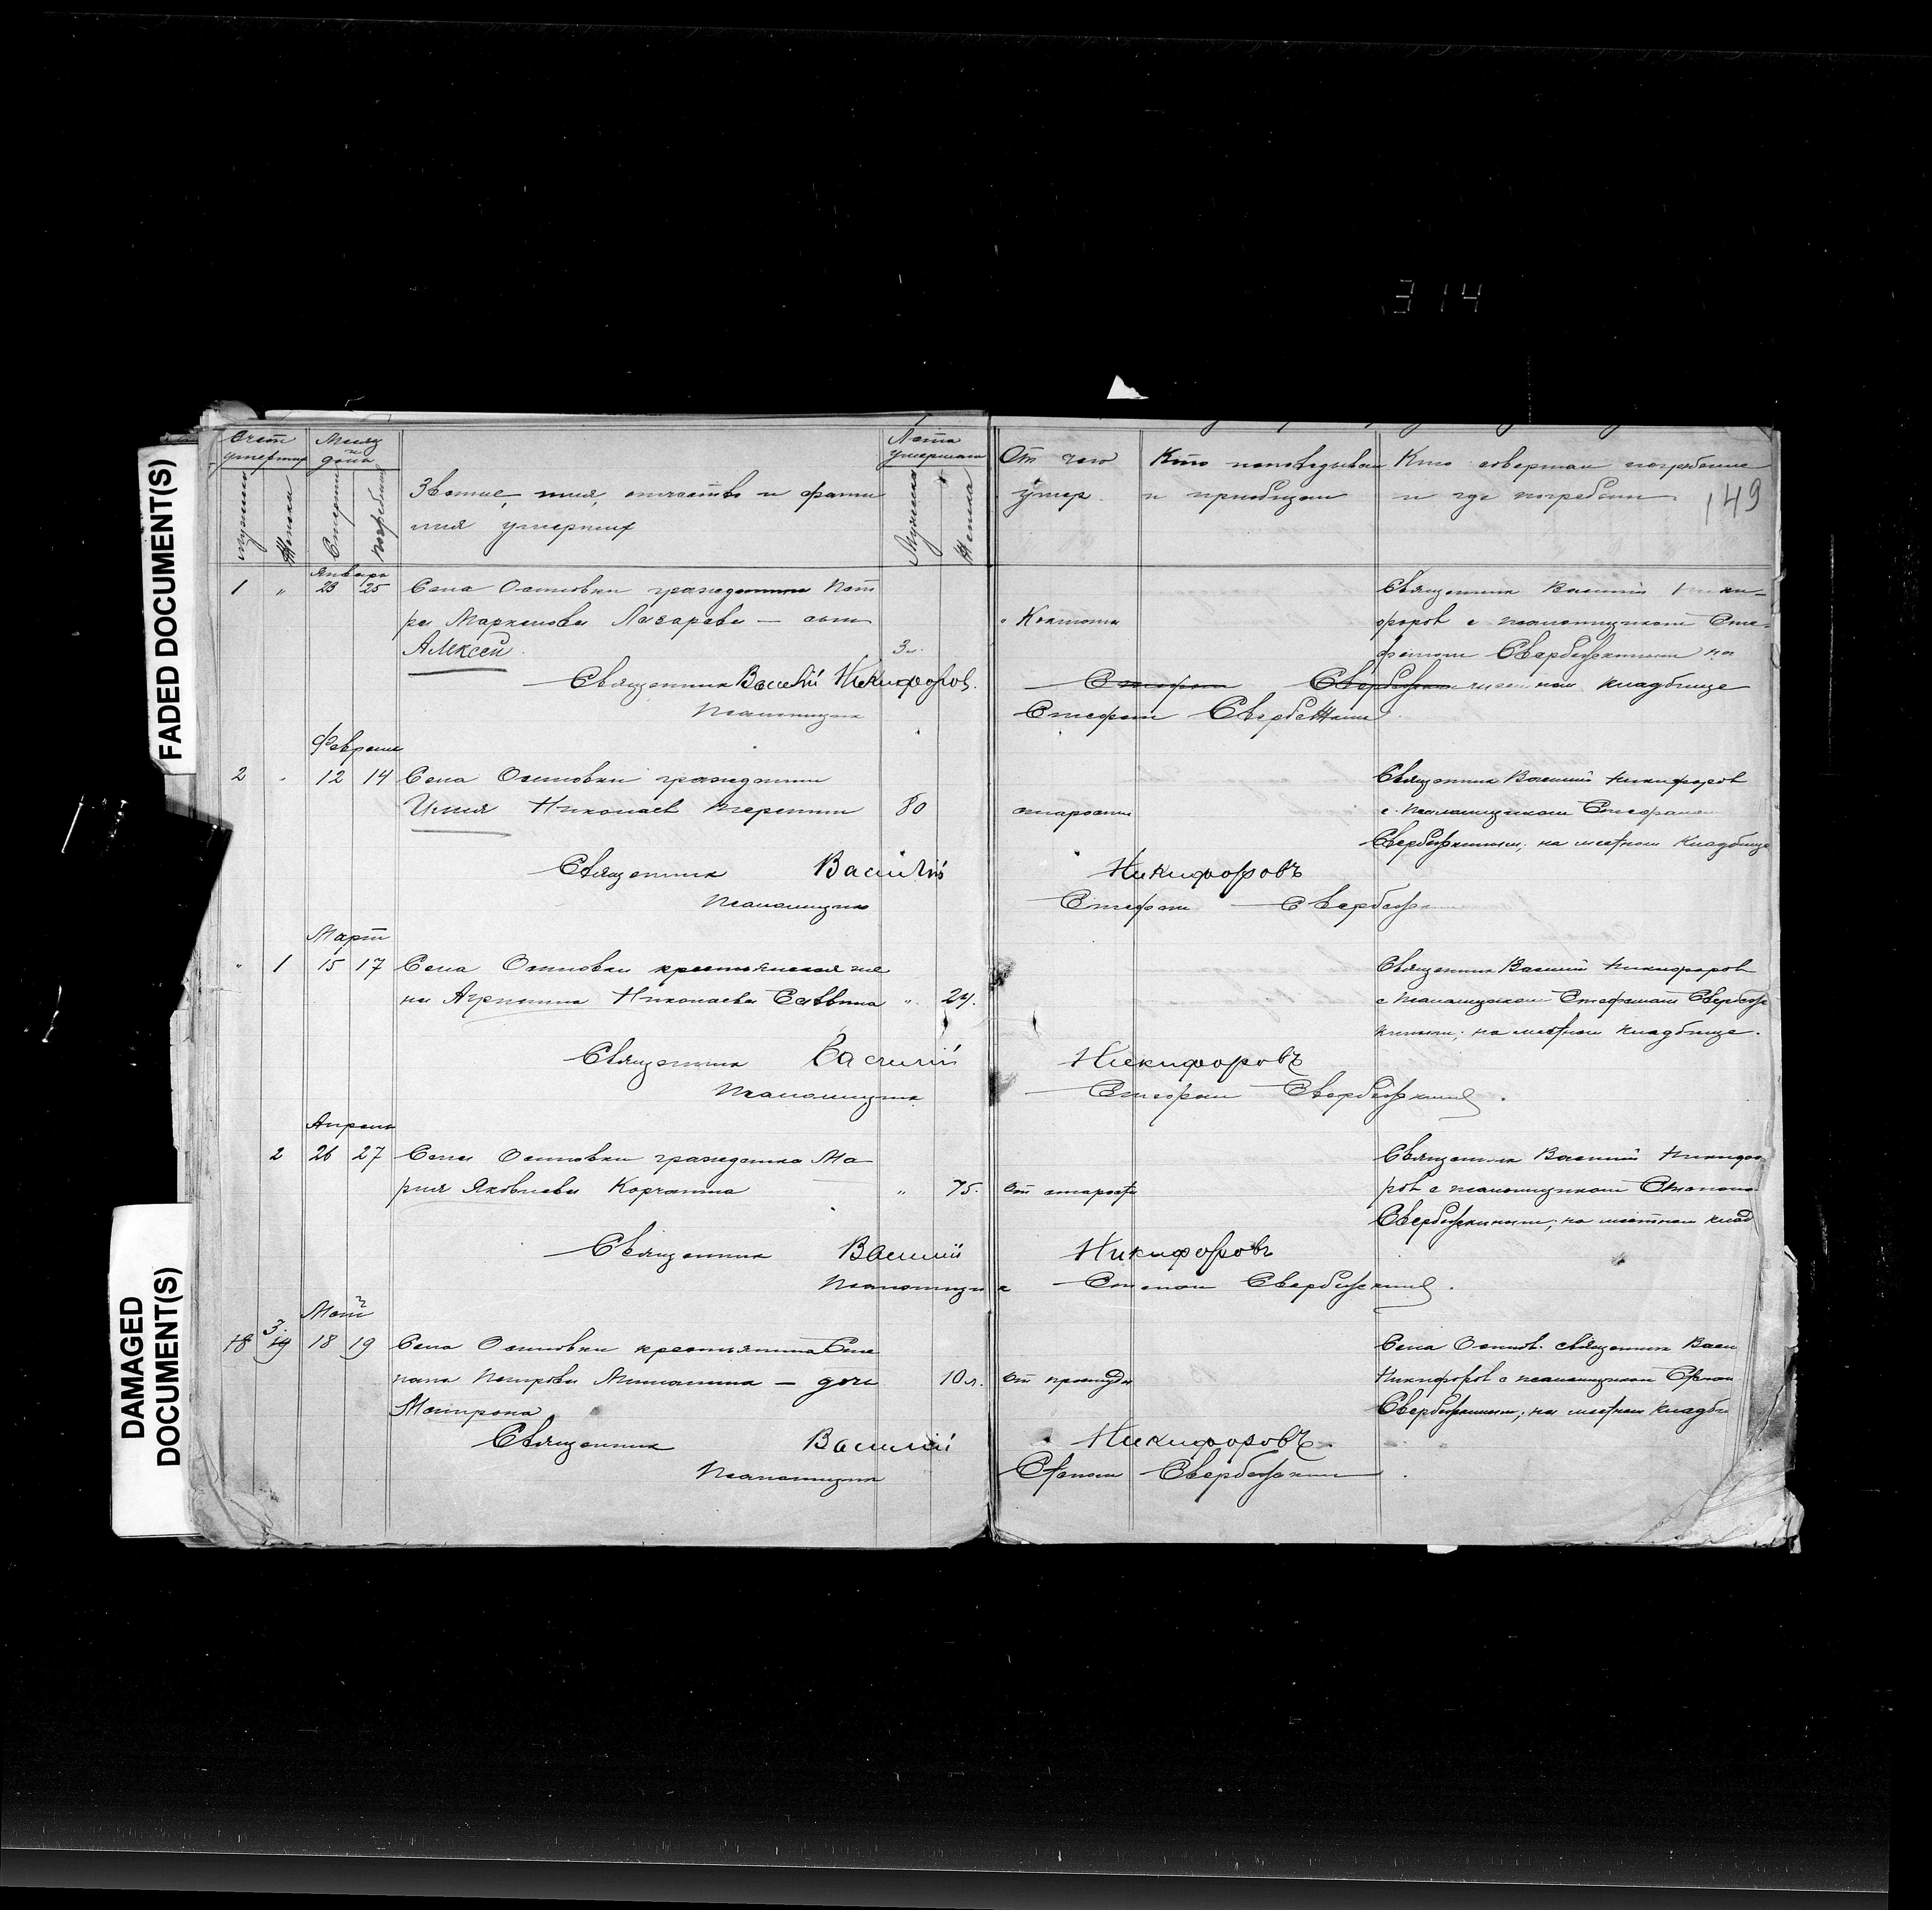 314
149
FADED DOCUMENT(S)
DAMAGED
DOCUMENT(S)
Счет умерших
Месяц и день
Звание, имя, отчество и фами
лия умерших
Лета умершаго
От чего умер
Кто исповедывал и приобщал
Кто совершал погребение
и где погребены
Мужска
Женска
Смерти
Погребения
Мужска
Женска
Январь
1 " 23 25 Села Осиновки гражданина Пет
ра Маркелова Лазарева — сын
Алексей 3 л.
Священник Василий Ники-
форов с псаломщиком Сте-
фаном Свербежкиным на
местном кладбище
Священник Василий Никифоров.
Псаломщик Стефан Свербежкин
Февраль
2 " 12 14 Села Осиновки гражданин
Николаев 80 старости
Священник Василий Никифоров
с псаломщиком Стефаном
Свербежкиным, на местном кладбище
Священник Василий Никифоровъ
Псаломщик Стефан Свербеж
Март
" 1 15 17 Села Осиновки крестьянская же
на Агрипина Николаева Саввина " 24.
Священник Василий Никифоров
с псаломщиком Стефаном Свербеж
киным, на местном кладбище.
Священник Василий Никифоровъ
Псаломщик Стефан Свербежкин
Апрель
2 26 27 Села Осиновки гражданка Ма
рия Яковлева Корчагина " 75. от старости
Священник Василий Никифо
ров с псаломщиком Степаном
Свербежкиным, на местном клад
Священник Василий Никифоровъ
Псаломщик Степан Свербежкин
Май
18 3 18 19 Села Осиновки крестьянина Сте
пана Петрова — дочь 10 л. от простуды
Матрона
Села Осинов. священник Васи
Никифоров с псаломщиком Степан
Свербежкиным, на местном кладби
Священник Василий Никифоровъ.
Псаломщик Степан Свербежкин